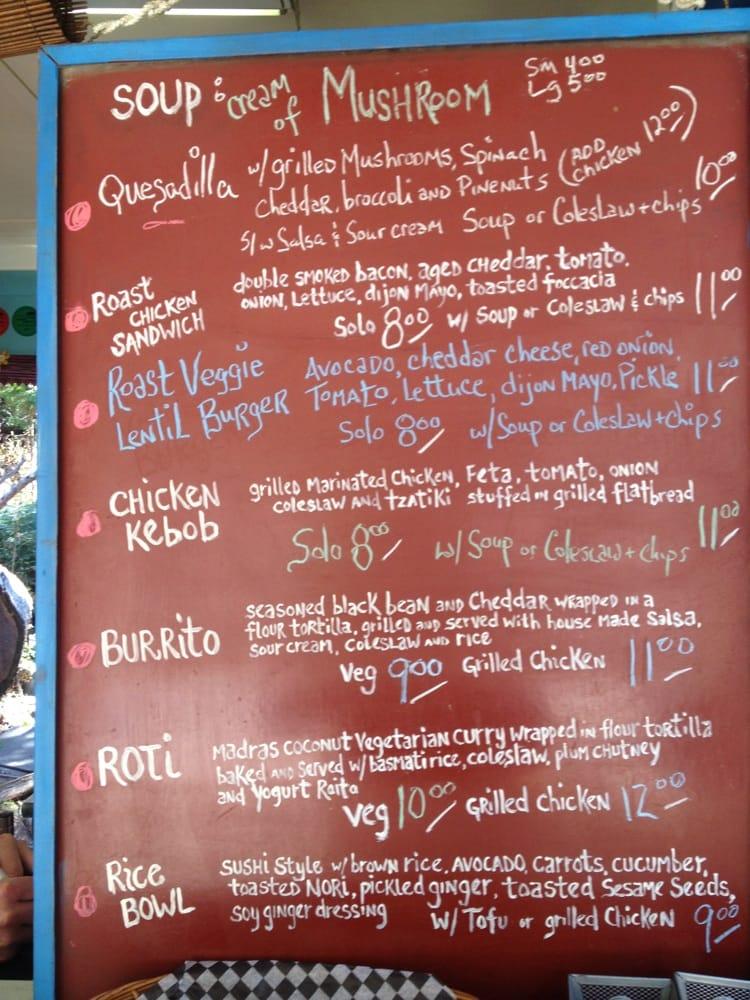 SOUP : cream of MUSHROOM Sm 4.00
Lg 5.00
Quesadilla w/ grilled Mushrooms, Spinach
Cheddar, broccoli and Pinenuts (ADD CHICKEN 12.00)
s/w Salsa & Sour cream Soup or Coleslaw + chips 10.00
Roast CHICKEN SANDWICH double smoked bacon, aged cheddar, tomato,
onion, lettuce, dijon mayo, toasted foccacia
Solo 8.00 w/ Soup or Coleslaw & chips 11.00
Roast Veggie Avocado, cheddar cheese, red onion,
Lentil Burger Tomato, Lettuce, dijon Mayo, Pickle 11.00
Solo 8.00 w/Soup or Coleslaw + chips
CHICKEN Kebob grilled Marinated Chicken, Feta, tomato, onion
coleslaw and tzatiki stuffed in grilled flatbread
Solo 8.00 w/ Soup or Coleslaw + chips 11.00
BURRito seasoned black bean and Cheddar wrapped in a
flour tortilla, grilled and served with house made Salsa,
sour cream, coleslaw and rice
Veg 9.00 Grilled Chicken 11.00
ROTi Madras coconut Vegetarian curry wrapped in flour tortilla
baked and served w/ basmati rice, coleslaw, plum chutney
and yogurt Raita
Veg 10.00 Grilled Chicken 12.00
Rice BOWL Sushi Style w/ brown rice, Avocado, carrots, cucumber,
toasted Nori, pickled ginger, toasted Sesame Seeds,
soy ginger dressing w/ Tofu or grilled Chicken 9.00